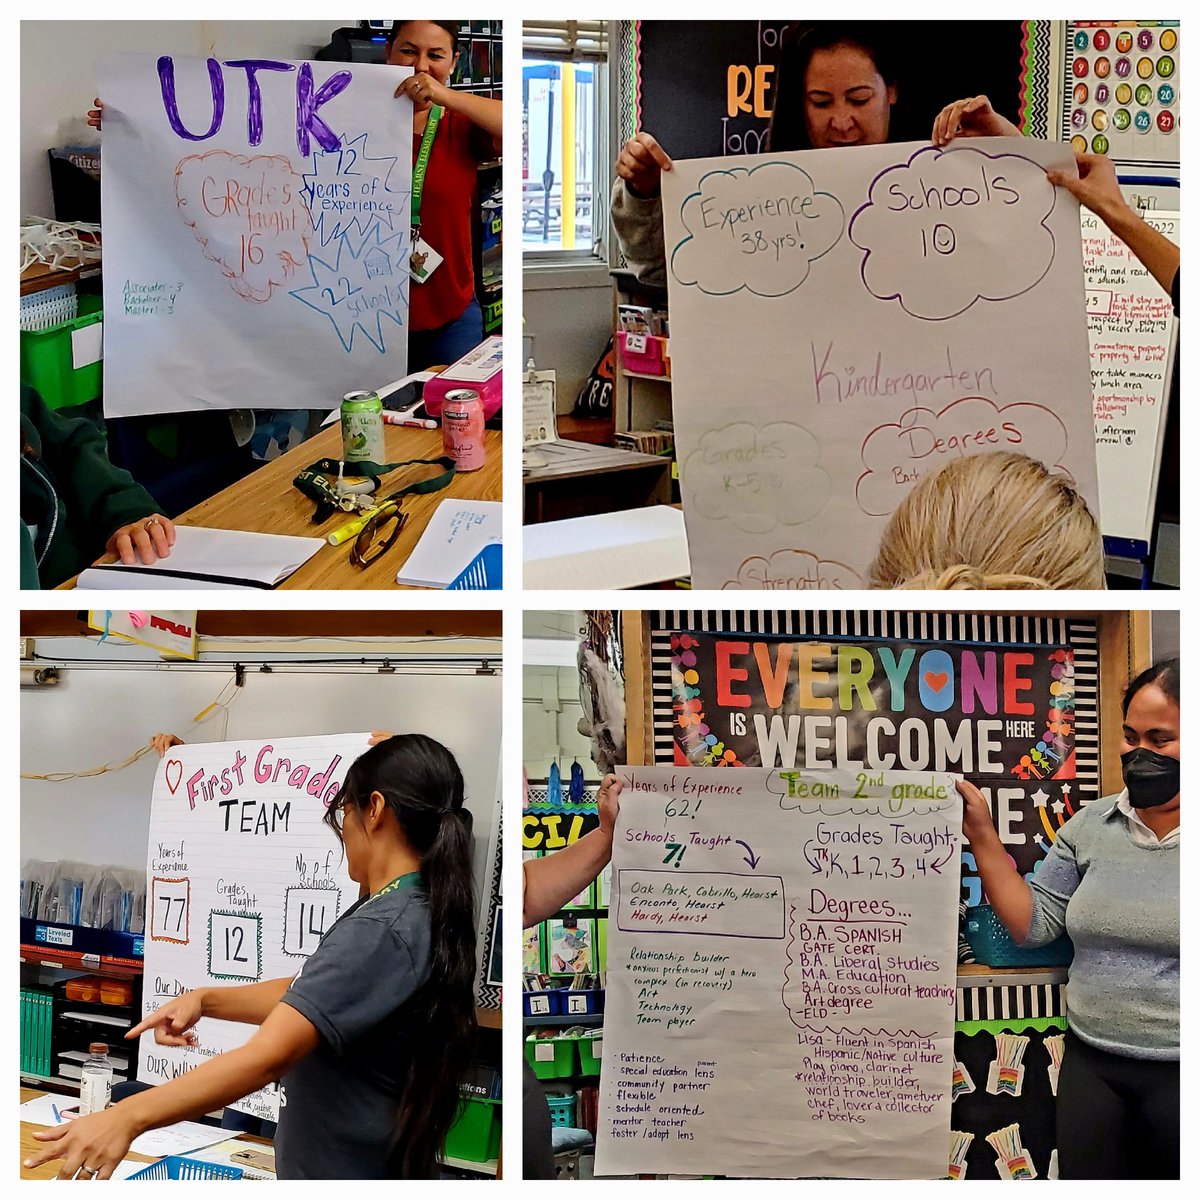 UTK
Grades
taught
16
72
years of
experience
22
schools
Associates - 3
Bachelors - 4
Masters - 5
HEARST ELEMENTARY
Experience
38 yrs!
Schools
10
Kindergarten
Grades
K-5
Degrees
Strengths
2022
commutative property
I will stay on
First Grade
TEAM
Years of
Experience
77
Grades
Taught
12
No. of
Schools
14
Leveled
Texts
Years of Experience
62!
Schools Taught
7!
Oak Park, Cabrillo, Hearst
Encanto, Hearst
Hardy, Hearst
Relationship builder
*anxious perfectionist w/ a hero
complex (in recovery)
Art
Technology
Team player
· Patience
· special education parent lens
· community partner
· flexible
· schedule oriented
· mentor teacher
foster/adopt lens
Team 2nd grade
Grades Taught:
TK, K, 1, 2, 3, 4
Degrees...
B.A. SPANISH
GATE CERT.
B.A. Liberal Studies
M.A. Education
B.A. Cross cultural teaching
Art degree
-ELD-
Lisa - Fluent in Spanish
Hispanic/Native culture
Play piano, clarinet
*relationship, builder,
world traveler, ametuer
chef, lover & collector
of books
EVERYONE
IS WELCOME HERE